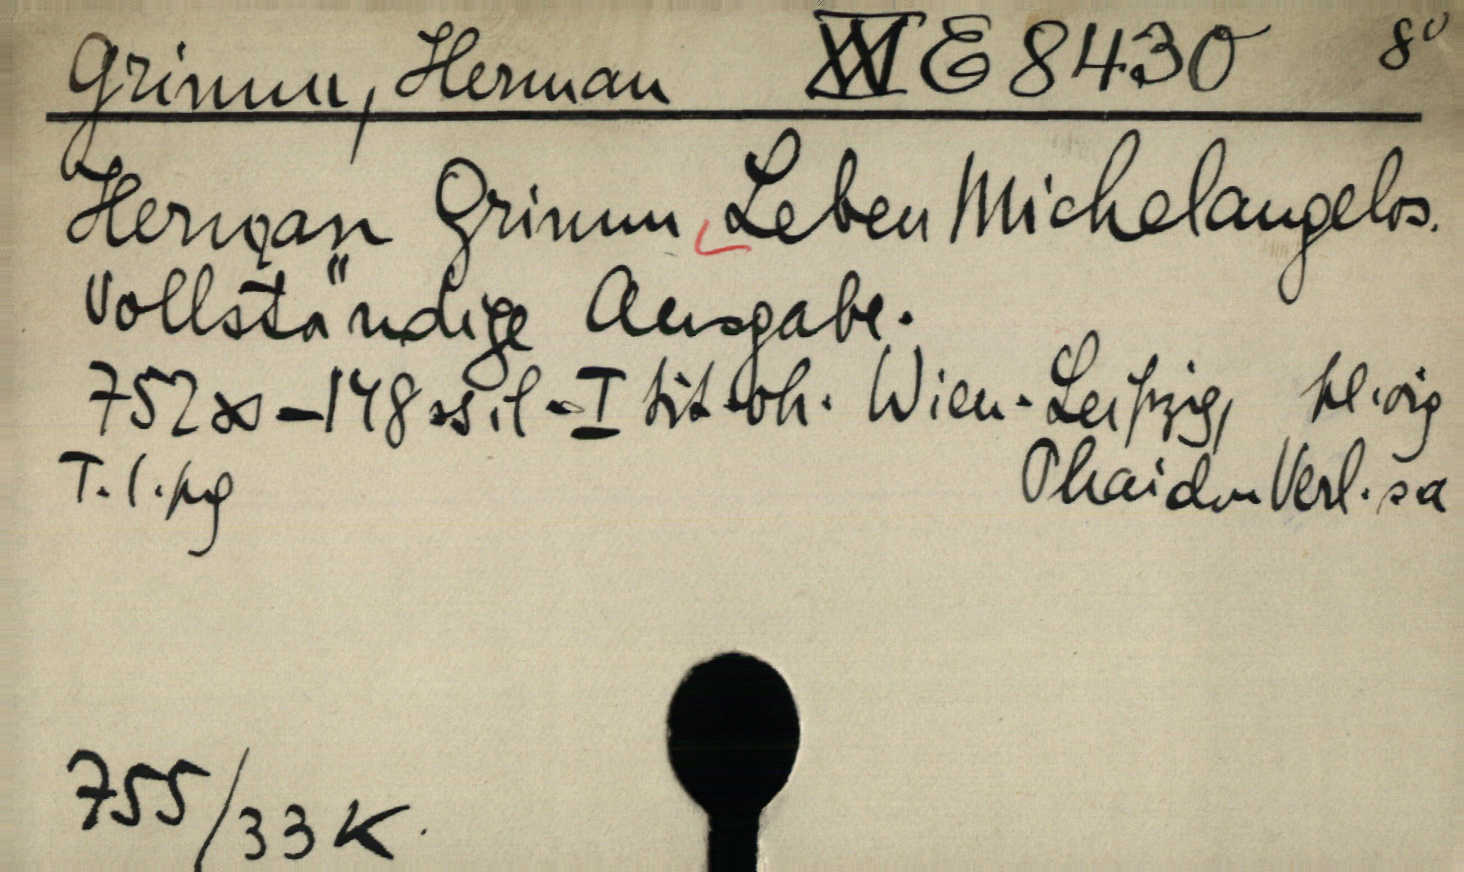 Grimm, Herman XXI E 8430 8°
Herman Grimm Leben Michelangelos.
Vollständige Ausgabe.
752 s – 148 s il – I tit. ob. Wien - Leipzig,
T. l. Phaidon Verl. sa
755/33 K.